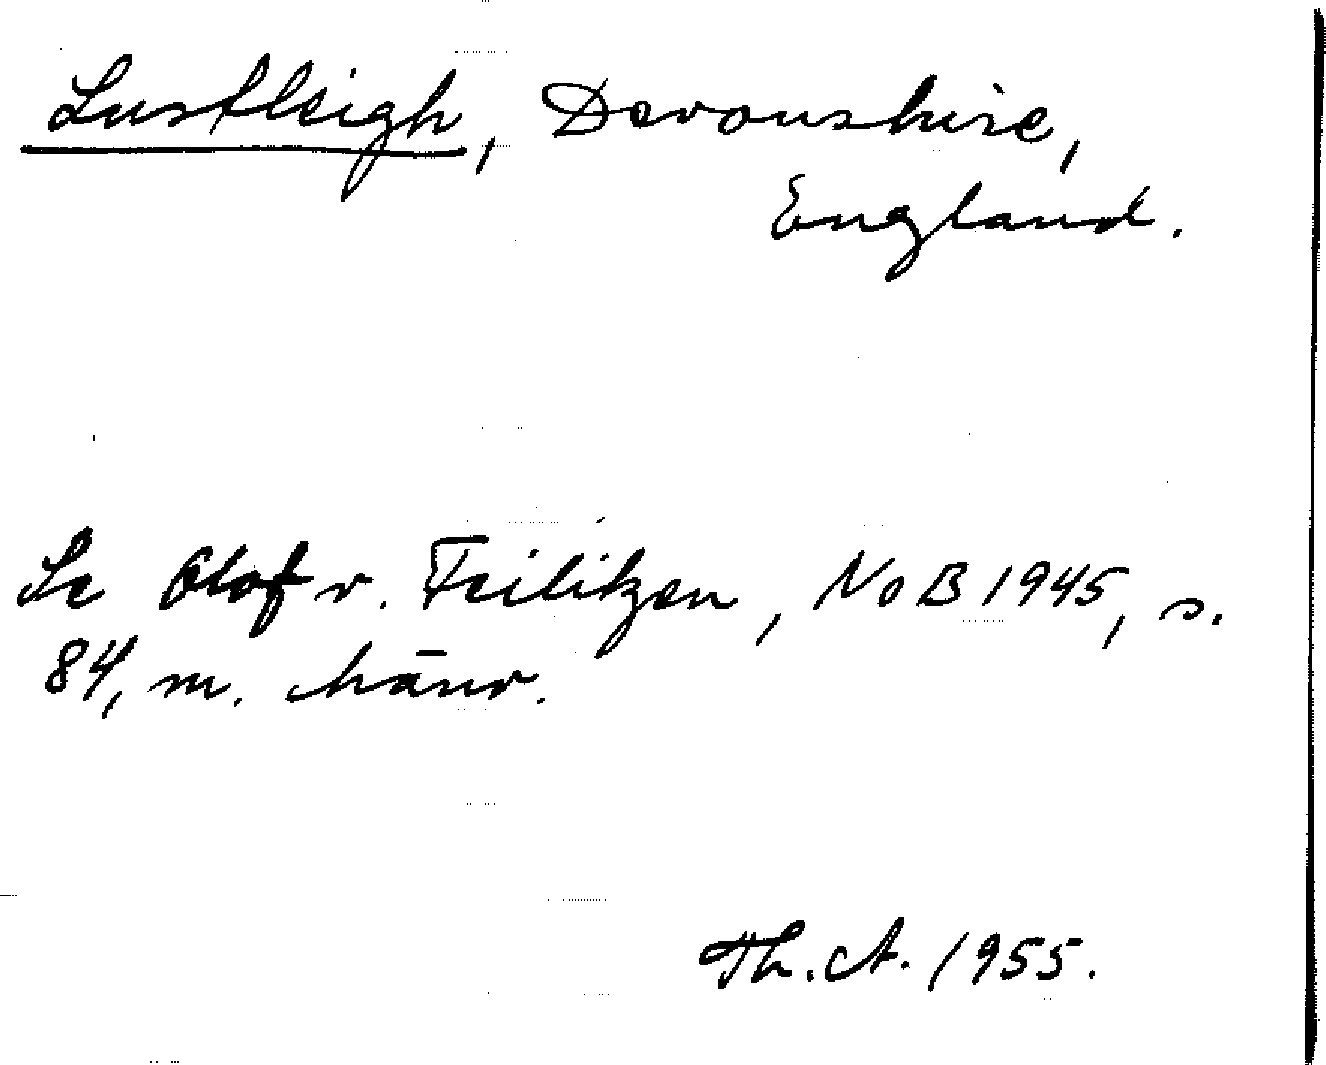 Lustleigh, Devonshire,
England.
Se Olof v. Feilitzen, NoB 1945, s.
84, m. hänv.
Th. A. 1955.